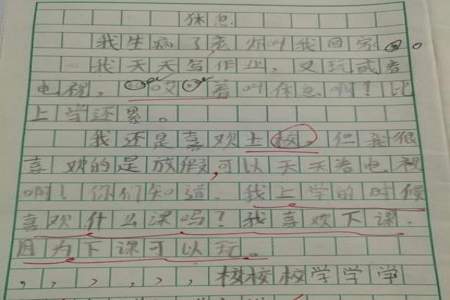 休息
我生病了老师叫我回家
我天天写作业，又玩或看
电视，哎着叫休息啊！比
上学还累。
我还是喜欢上校，但我很
喜欢的是放假，可以天天看电视
啊！你们知道，我上学的时候
喜欢什么课吗？我喜欢下课，
因为下课可以玩。
，，，，，，校校校学学学